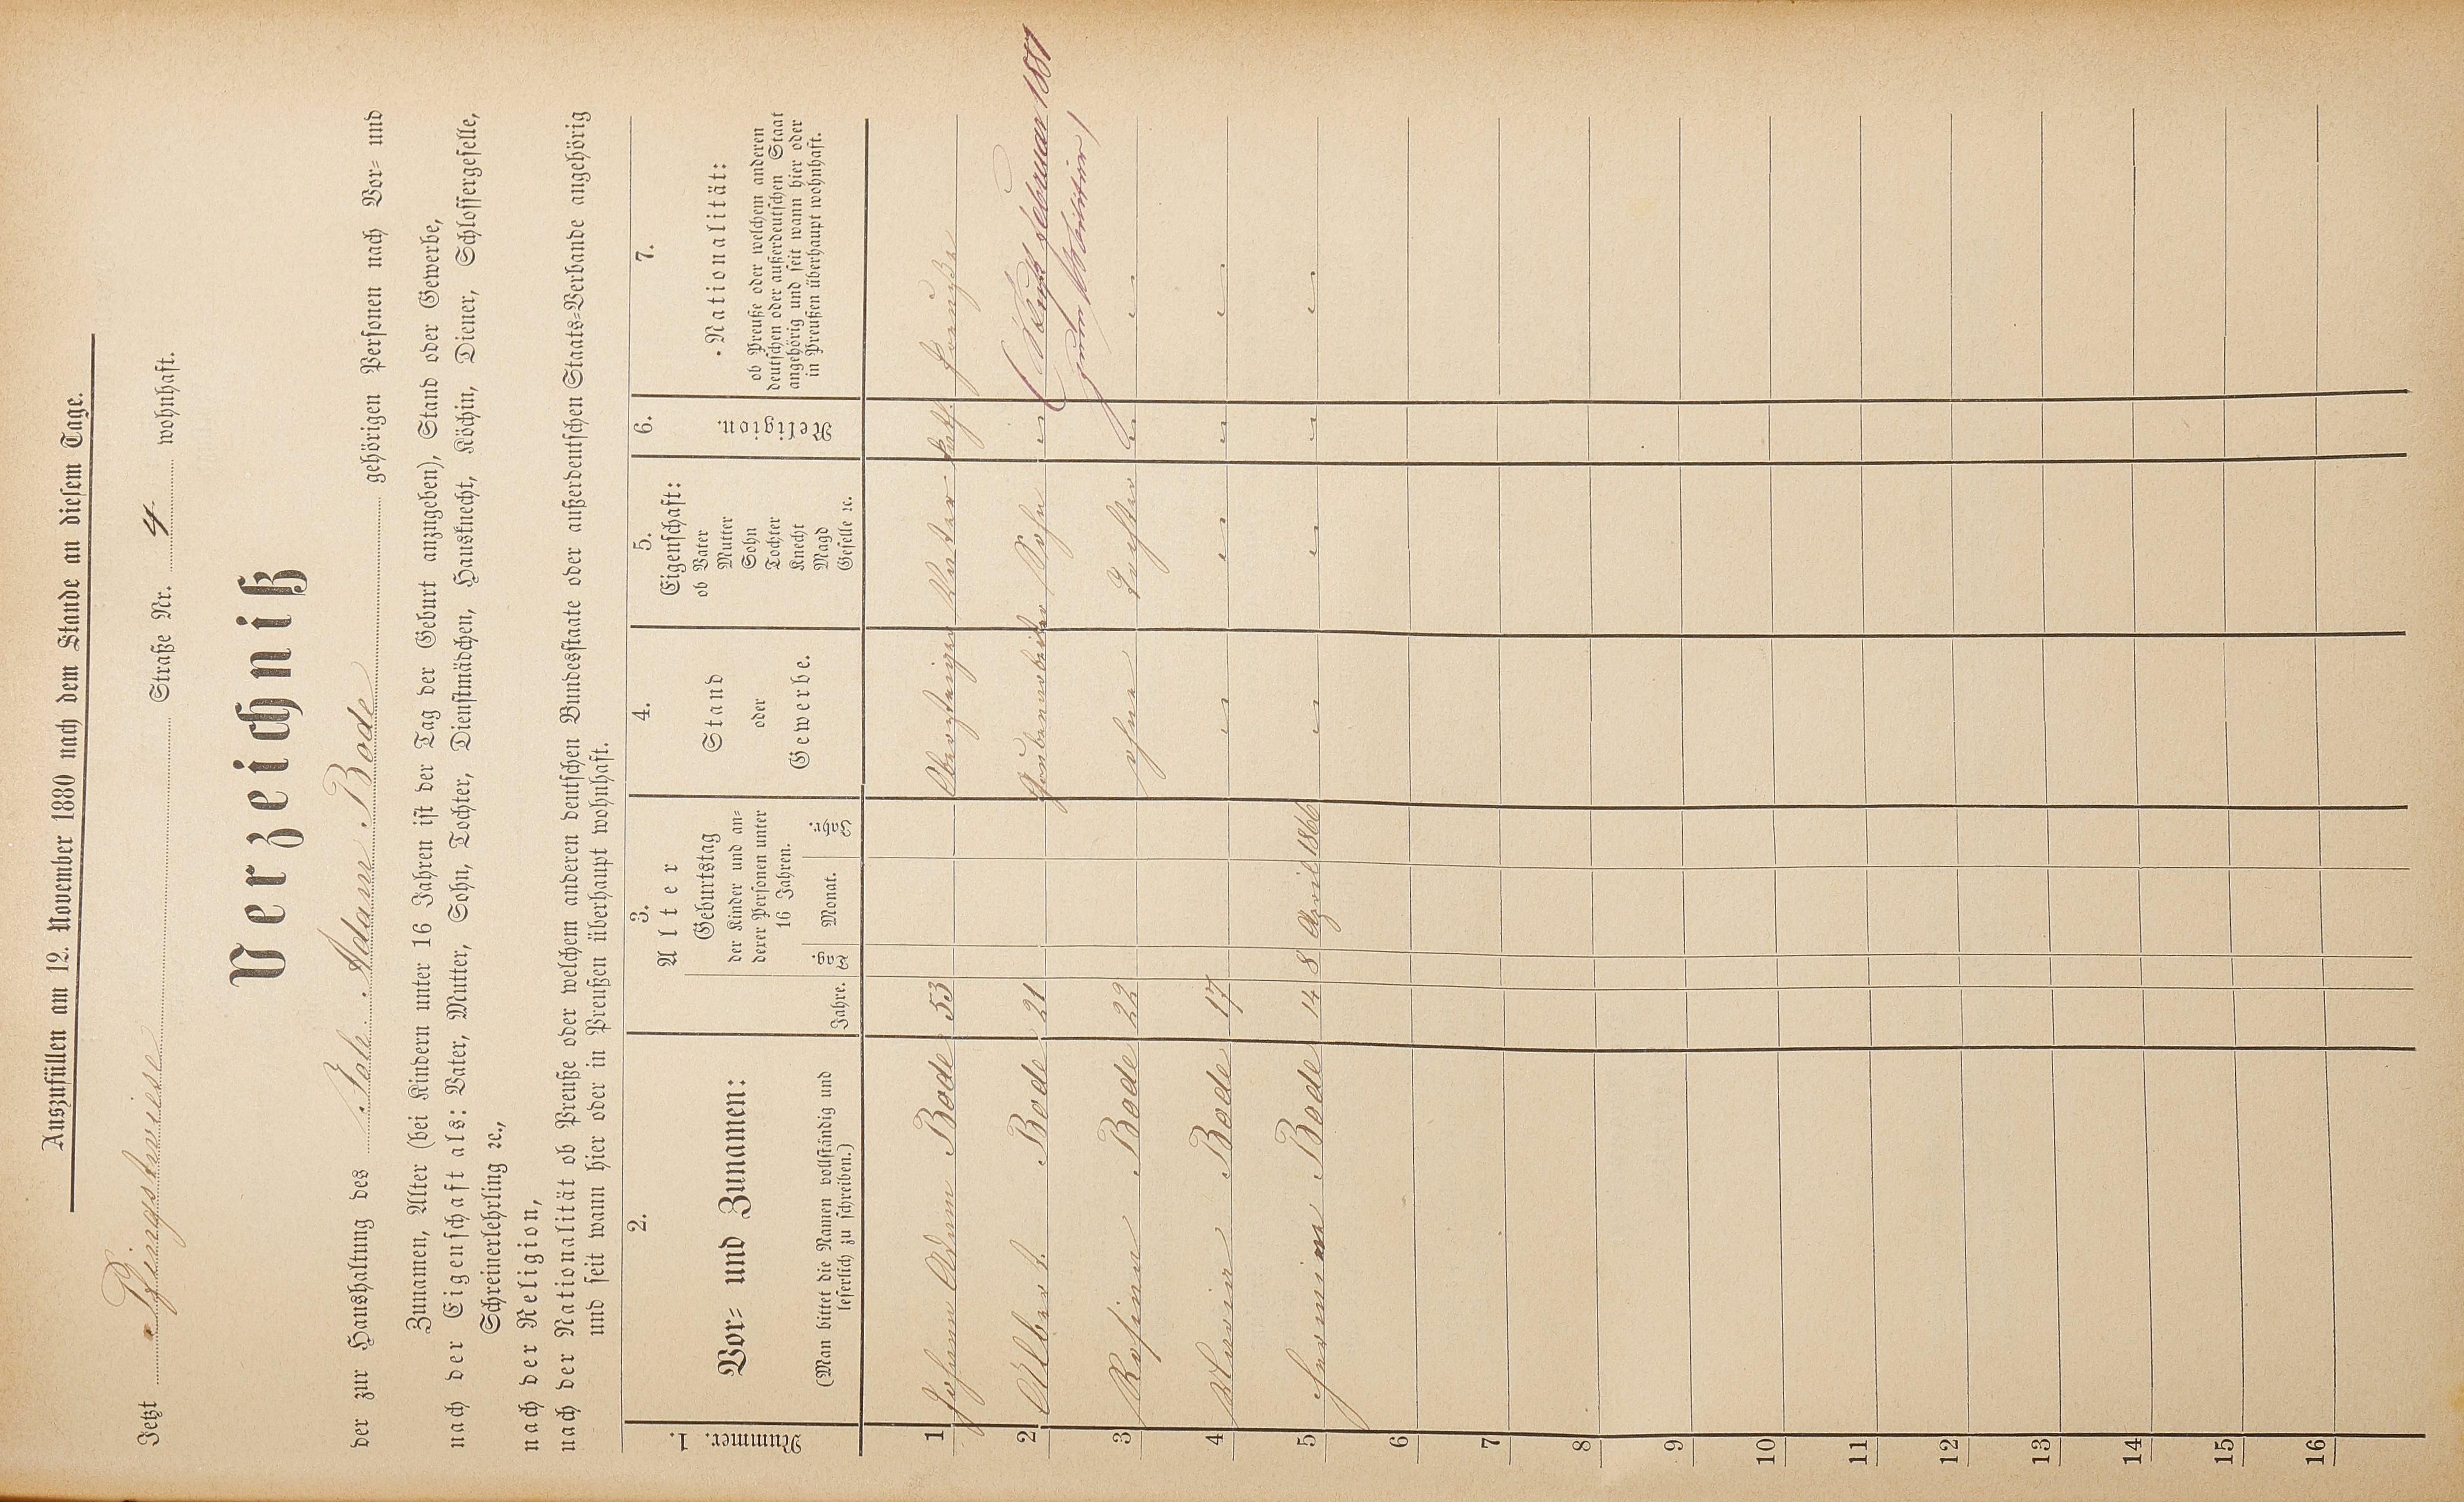 Auszufüllen am 12. November 1880 nach dem Stande an diesem Tage.
Jetzt Pfingstwiese Straße Nr. 4 wohnhaft.
Verzeichniß
der zur Haushaltung des Joh. Adam Bode gehörigen Personen nach Vor= und
Zunamen, Alter (bei Kindern unter 16 Jahren ist der Tag der Geburt anzugeben), Stand oder Gewerbe,
nach der Eigenschaft als: Vater, Mutter, Sohn, Tochter, Dienstmädchen, Hausknecht, Köchin, Diener, Schlossergeselle,
Schreinerlehrling ꝛc.,
nach der Religion,
nach der Nationalität ob Preuße oder welchem anderen deutschen Bundesstaate oder außerdeutschen Staats=Verbande angehörig
und seit wann hier oder in Preußen überhaupt wohnhaft.
1.
Nummer.
2.
Vor= und Zunamen:
(Man bittet die Namen vollständig und
leserlich zu schreiben.)
3.
Alter
Jahre.
Geburtstag
der Kinder und an=
derer Personen unter
16 Jahren.
Tag.
Monat.
Jahr.
4.
Stand
oder
Gewerbe.
5.
Eigenschaft:
ob Vater
Mutter
Sohn
Tochter
Knecht
Magd
Geselle ꝛc.
6.
Religion.
7.
Nationalität:
ob Preuße oder welchem anderen
deutschen oder außerdeutschen Staat
angehörig und seit wann hier oder
in Preußen überhaupt wohnhaft.
1 Johann Adam Bode 53 Obersteiger Vater kath. Preuße
2 Albert Bode 21 Grubenarbeiter Sohn " ( Februar 1881
zum
3 Rosina Bode 22 ohne Tochter " "
4 Maria Bode 17 " " " "
5 Hermine Bode 14 8 April 1866 " " " "
6
7
8
9
10
11
12
13
14
15
16